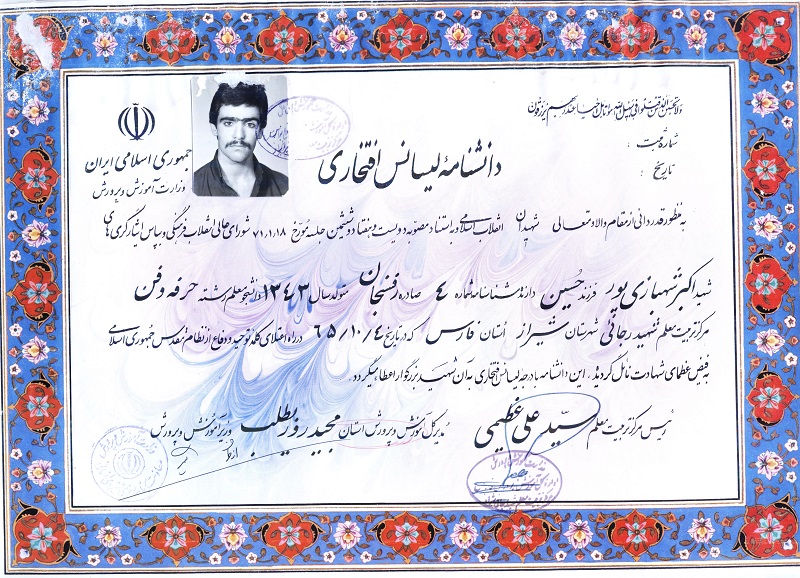 ولا تحسبن الذین قتلوا فی سبیل الله امواتا بل احیاء عند ربهم یرزقون
شماره ثبت :
تاریخ :
جمهوری اسلامی ایران
وزارت آموزش و پرورش
دانشنامهٔ لیسانس افتخاری
به منظور قدردانی از مقام والا و متعالی شهیدان انقلاب اسلامی و به استناد مصوبه دویست و هفتاد و ششمین جلسه مورخ ۷۱،۱،۱۸ شورای عالی انقلاب فرهنگی و بپاس ایثارگری های
شهید اکبر شهبازی پور فرزند حسین دارنده شناسنامه شماره ۴ صادره رفسنجان متولد سال ۱۳۴۳ دانشجو معلم رشته حرفه و فن
مرکز تربیت معلم شهید رجائی شهرستان شیراز استان فارس که در تاریخ ۶۵/۱۰/۴ در راه اعتلای کلمه توحید و دفاع از نظام مقدس جمهوری اسلامی
به فیض عظمای شهادت نائل گردیده، این دانشنامه با درجه لیسانس افتخاری به آن شهید بزرگوار اعطاء میگردد.
رئیس مرکز تربیت معلم سید علی عظیمی مدیر کل آموزش و پرورش استان مجید روزیطلب وزیر آموزش و پرورش